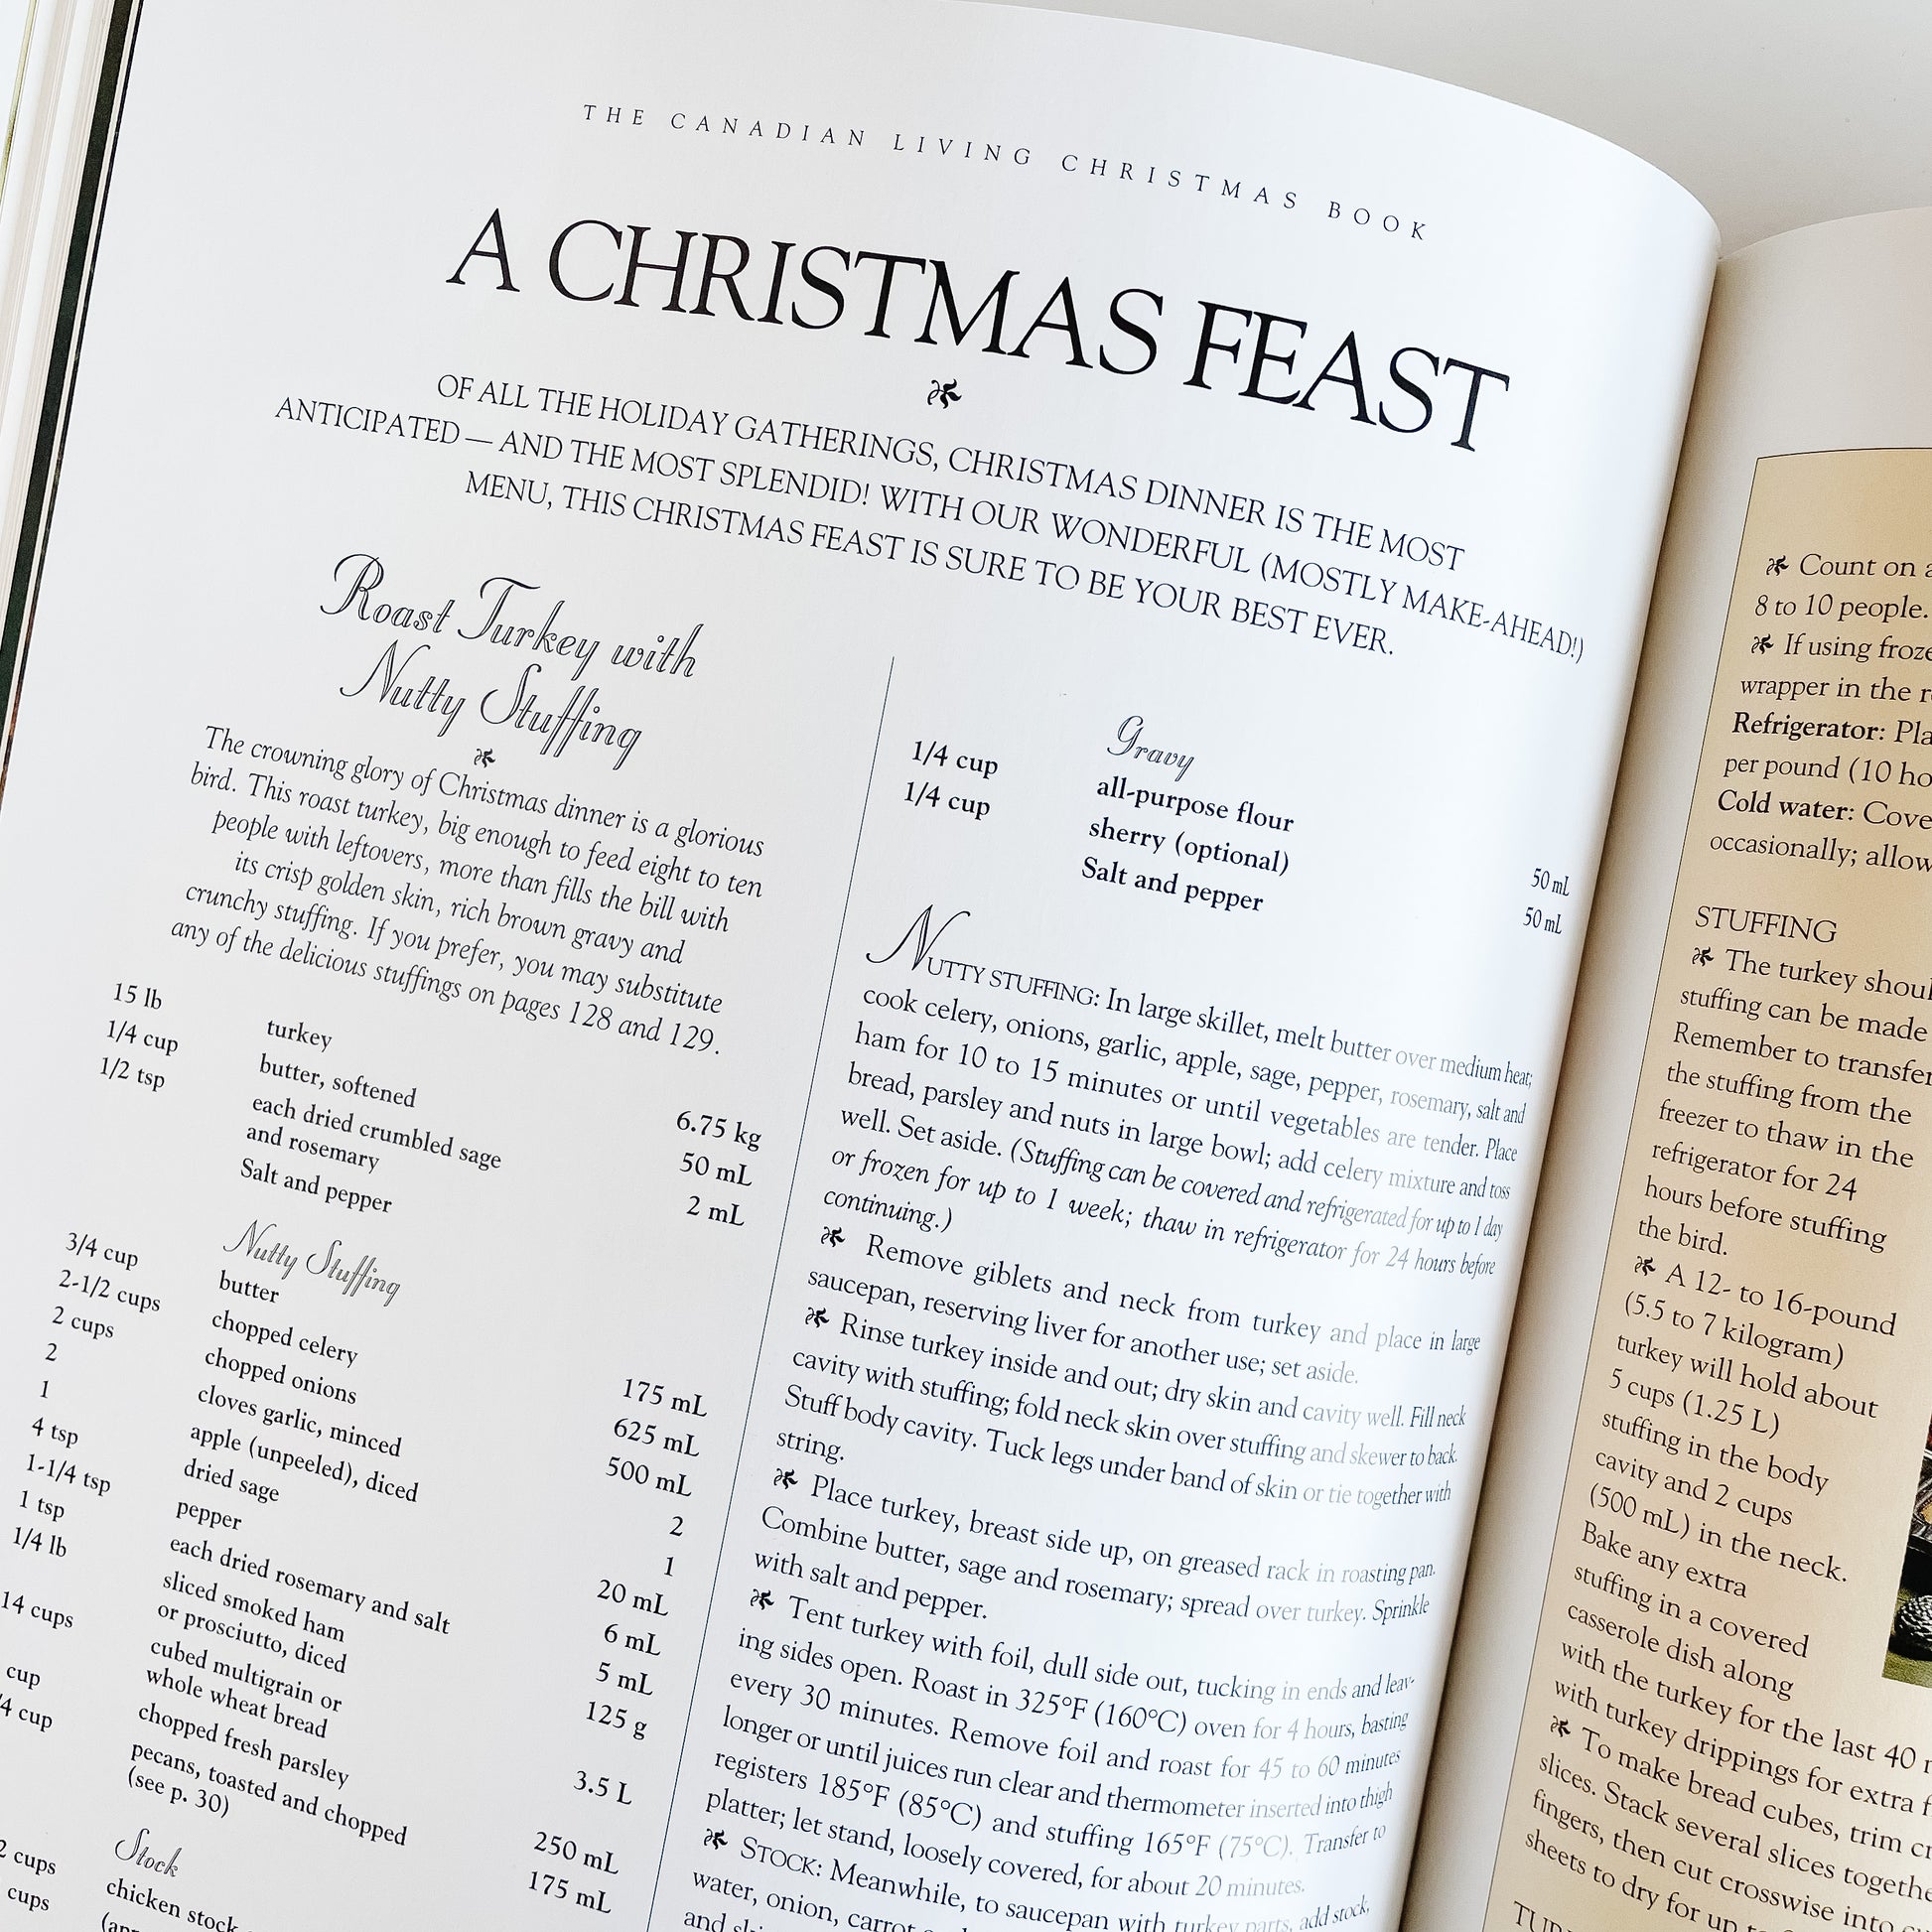 THE CANADIAN LIVING CHRISTMAS BOOK
A CHRISTMAS FEAST
OF ALL THE HOLIDAY GATHERINGS, CHRISTMAS DINNER IS THE MOST
ANTICIPATED — AND THE MOST SPLENDID! WITH OUR WONDERFUL (MOSTLY MAKE-AHEAD!)
MENU, THIS CHRISTMAS FEAST IS SURE TO BE YOUR BEST EVER.
Roast Turkey with
Nutty Stuffing
The crowning glory of Christmas dinner is a glorious
bird. This roast turkey, big enough to feed eight to ten
people with leftovers, more than fills the bill with
its crisp golden skin, rich brown gravy and
crunchy stuffing. If you prefer, you may substitute
any of the delicious stuffings on pages 128 and 129.
15 lb turkey 6.75 kg
1/4 cup butter, softened 50 mL
1/2 tsp each dried crumbled sage 2 mL
and rosemary
Salt and pepper
Nutty Stuffing
3/4 cup butter 175 mL
2-1/2 cups chopped celery 625 mL
2 cups chopped onions 500 mL
2 cloves garlic, minced 2
1 apple (unpeeled), diced 1
4 tsp dried sage 20 mL
1-1/4 tsp pepper 6 mL
1 tsp each dried rosemary and salt 5 mL
1/4 lb sliced smoked ham 125 g
or prosciutto, diced
14 cups cubed multigrain or 3.5 L
whole wheat bread
cup chopped fresh parsley 250 mL
/4 cup pecans, toasted and chopped 175 mL
(see p. 30)
Stock
2 cups chicken stock
cups
Gravy
1/4 cup all-purpose flour 50 mL
1/4 cup sherry (optional) 50 mL
Salt and pepper
NUTTY STUFFING: In large skillet, melt butter over medium heat;
cook celery, onions, garlic, apple, sage, pepper, rosemary, salt and
ham for 10 to 15 minutes or until vegetables are tender. Place
bread, parsley and nuts in large bowl; add celery mixture and toss
well. Set aside. (Stuffing can be covered and refrigerated for up to 1 day
or frozen for up to 1 week; thaw in refrigerator for 24 hours before
continuing.)
Remove giblets and neck from turkey and place in large
saucepan, reserving liver for another use; set aside.
Rinse turkey inside and out; dry skin and cavity well. Fill neck
cavity with stuffing; fold neck skin over stuffing and skewer to back.
Stuff body cavity. Tuck legs under band of skin or tie together with
string.
Place turkey, breast side up, on greased rack in roasting pan.
Combine butter, sage and rosemary; spread over turkey. Sprinkle
with salt and pepper.
Tent turkey with foil, dull side out, tucking in ends and leav-
ing sides open. Roast in 325°F (160°C) oven for 4 hours, basting
every 30 minutes. Remove foil and roast for 45 to 60 minutes
longer or until juices run clear and thermometer inserted into thigh
registers 185°F (85°C) and stuffing 165°F (75°C). Transfer to
platter; let stand, loosely covered, for about 20 minutes.
STOCK: Meanwhile, to saucepan with turkey parts, add stock,
water, onion, carrot
Count on a
8 to 10 people.
If using froze
wrapper in the r
Refrigerator: Pla
per pound (10 ho
Cold water: Cove
occasionally; allow
STUFFING
The turkey shoul
stuffing can be made
Remember to transfer
the stuffing from the
freezer to thaw in the
refrigerator for 24
hours before stuffing
the bird.
A 12- to 16-pound
(5.5 to 7 kilogram)
turkey will hold about
5 cups (1.25 L)
stuffing in the body
cavity and 2 cups
(500 mL) in the neck.
Bake any extra
stuffing in a covered
casserole dish along
with the turkey for the last 40
with turkey drippings for extra f
To make bread cubes, trim cr
slices. Stack several slices togethe
fingers, then cut crosswise into
sheets to dry for up to